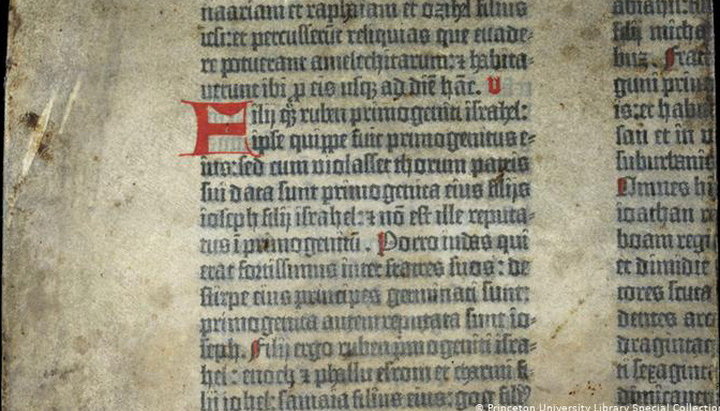 naariam et raphaiam et ozihel filius
iesi: et percusserūt reliquias que euade-
re potuerant amelechitarum: ⁊ habita-
uerunt ibi p eis usqꝫ ad diē hāc. U
Filij qꝫ ruben primogeniti israhel:
ipse quippe fuit primogenitus e-
ius: sed cum violasset thorum patris
sui data sunt primogenita eius filijs
ioseph filij israhel: ⁊ nō est ille reputa-
tus ī primogenitū. Porro iudas qui
erat fortissimus inter fratres suos: de
stirpe eius principes germinati sunt:
primogenita autem reputata sunt io-
seph. Filij ergo ruben primogeniti isra-
hel: enoch ⁊ phallu esrom et charmi fi-
lij iohel: samaia filius eius: gog filiꝰ
abiahil: fili
filij micha
buz. Frat
guni prin
is: et habi
san et in
suburbanis
Omnes hi
ioathan re
boam regi
et dimidie
tores scuta
dentes arc
draginta
ti sexagint
dimicaue
© Princeton University Library Special Collectio